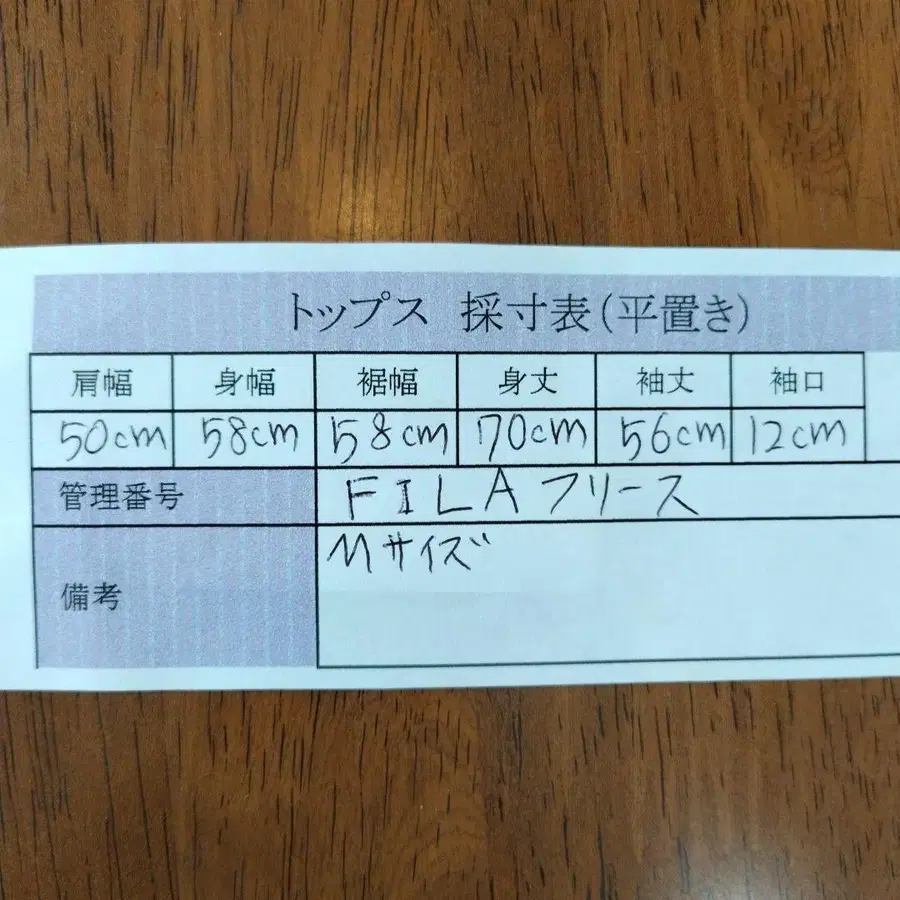 トップス 採寸表(平置き)
肩幅 身幅 裾幅 身丈 袖丈 袖口
50cm 58cm 58cm 70cm 56cm 12cm
管理番号 FILAフリース
備考 Mサイズ